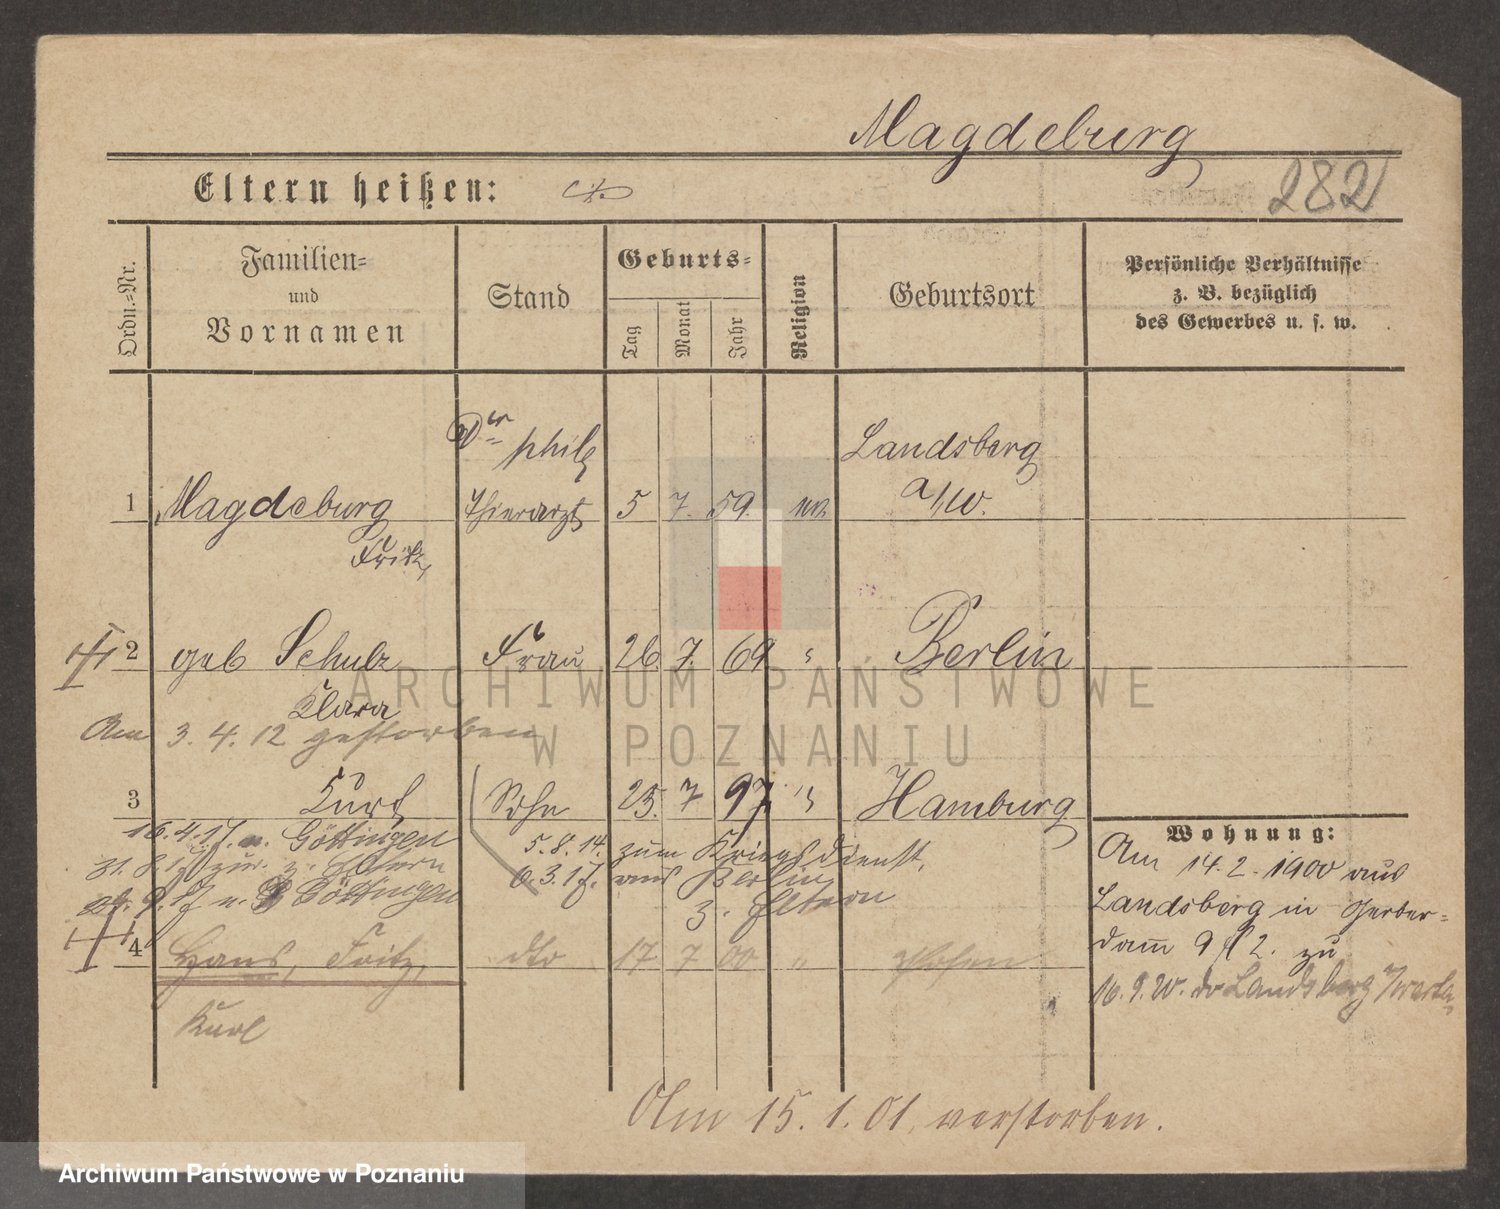 Magdeburg
Eltern heißen:
282
Ordn.=Nr.
Familien=
und
Vornamen
Stand
Geburts=
Tag
Monat
Jahr
Religion
Geburtsort
Persönliche Verhältnisse
z. B. bezüglich
des Gewerbes u. s. w.
Dr phil
Landsberg
1 Magdeburg Thierarzt 5 7. 59. a/W.
Fritz
2 geb Schulz Frau 26 7. 69 " Berlin
Clara
Am 3. 4. 12 gestorben
3 Kurt Sohn 25. 7 97. " Hamburg
16.4.17. n. Göttingen
31.8.17 zur. z. Eltern
9.17 n. Göttingen
5.8.14. zum Kriegsdienst.
6.3.17. aus Berlin
z. Eltern
4 Hans, Fritz, dto 17 7 00 " Posen
Kurt
Wohnung:
Am 14.2.1900 aus
Landsberg in Gerber=
damm 9 / 2. zu
16.9.20. Landsberg Warthe
Am 15.1.01. verstorben.
ARCHIWUM PAŃSTWOWE
W POZNANIU
Archiwum Państwowe w Poznaniu